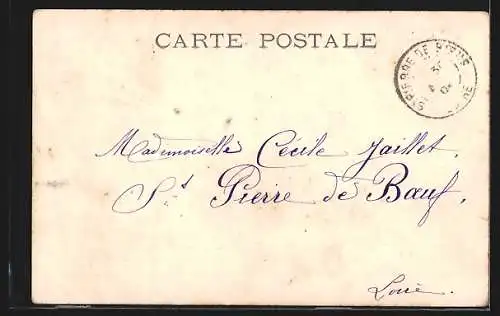 CARTE POSTALE
ST PIERRE DE BŒUF
Mademoiselle Cécile Jaillet,
St Pierre de Bœuf,
Loire.